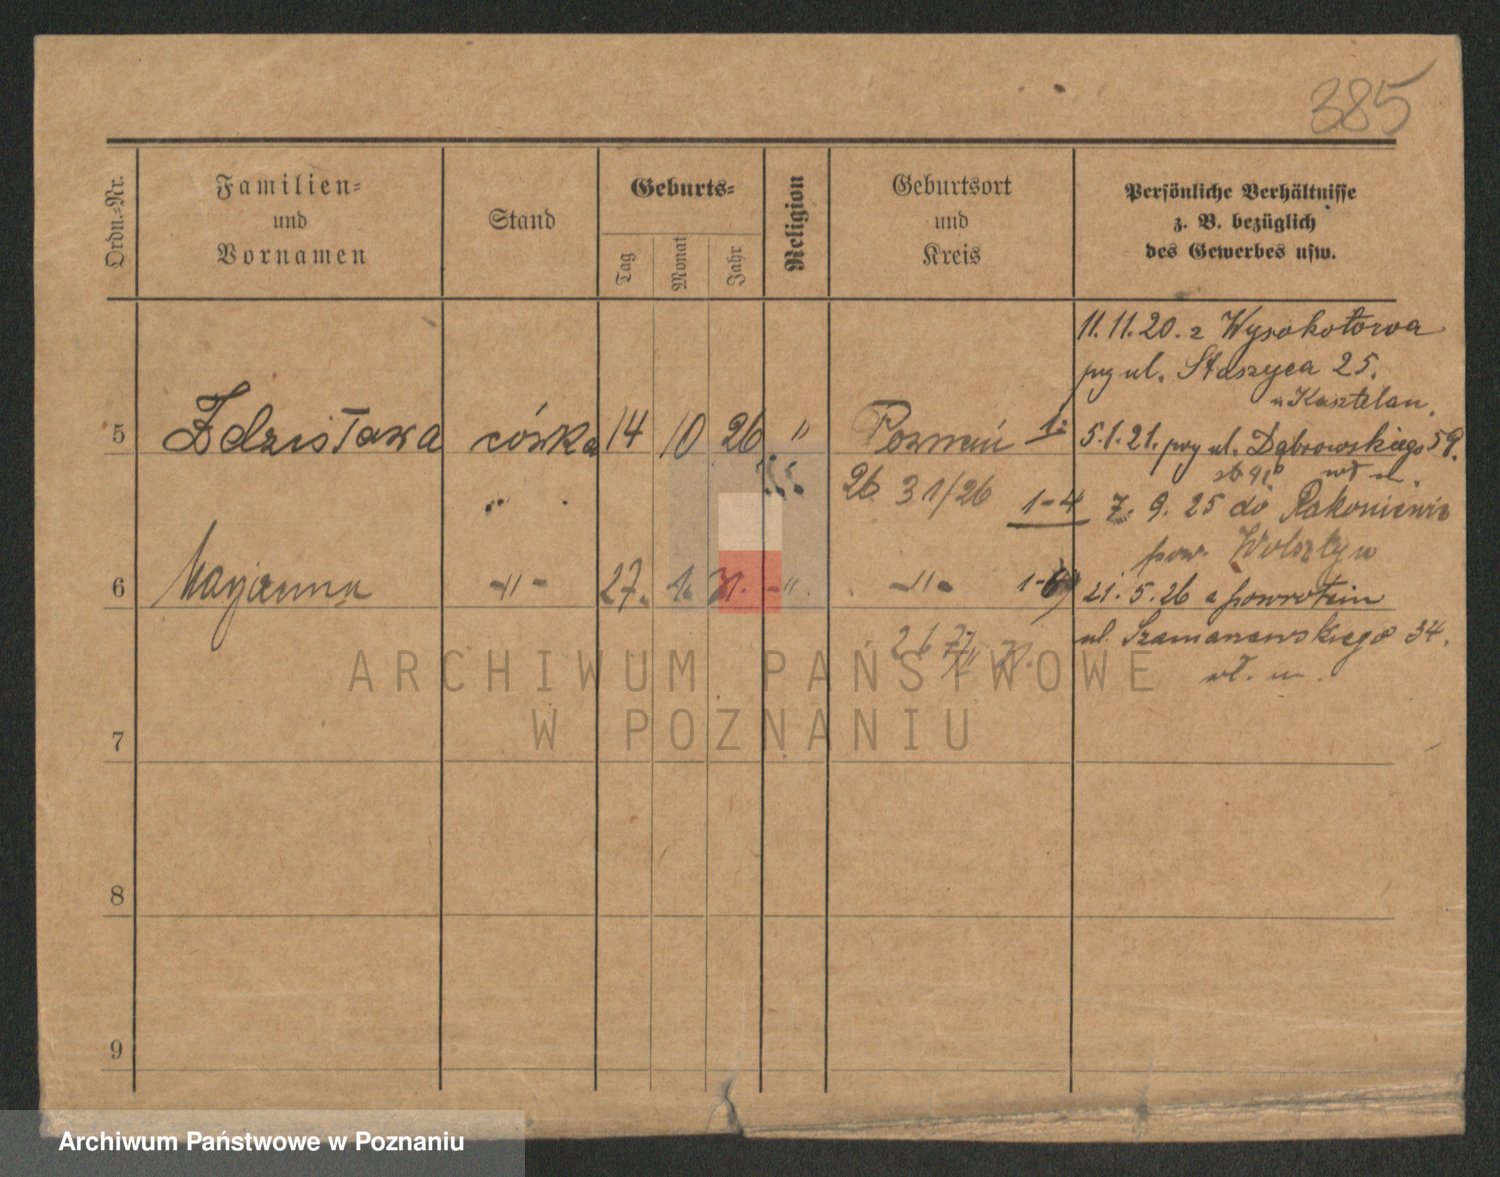 385
Ordn.=Nr.
Familien=
und
Vornamen
Stand
Geburts=
Tag
Monat
Jahr
Religion
Geburtsort
und
Kreis
Persönliche Verhältnisse
z. B. bezüglich
des Gewerbes usw.
11.11.20. z Wysokotowa
przy ul. Staszyca 25.
u Kasztelan.
5 Zdzisława córka 14 10 26 " Poznań 1:
5.1.21. przy ul. Dąbrowskiego 59.
26 31/26 1-4
7. 9. 25 do Rakoniewic
pow. Wolsztyn
6 Maryanna -"- 27. 1. 31. -" -"- 1-6
21.5.26 z powrotem
ul. Szamarzewskiego 34.
wł. m.
7
8
9
ARCHIWUM PAŃSTWOWE
W POZNANIU
Archiwum Państwowe w Poznaniu